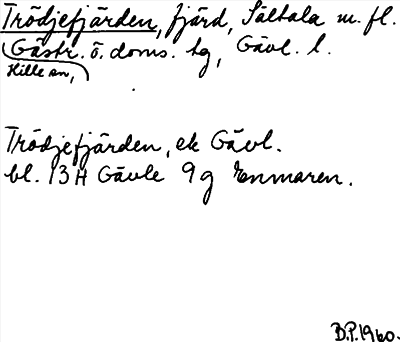 Trödjefjärden, fjärd, Sältala m. fl.
Gästr. ö. doms. tg, Gävl. l.
Hille sn,
Trödjefjärden, ek Gävl.
bl. 13H Gävle 9g Enmaren.
B.P. 1960.